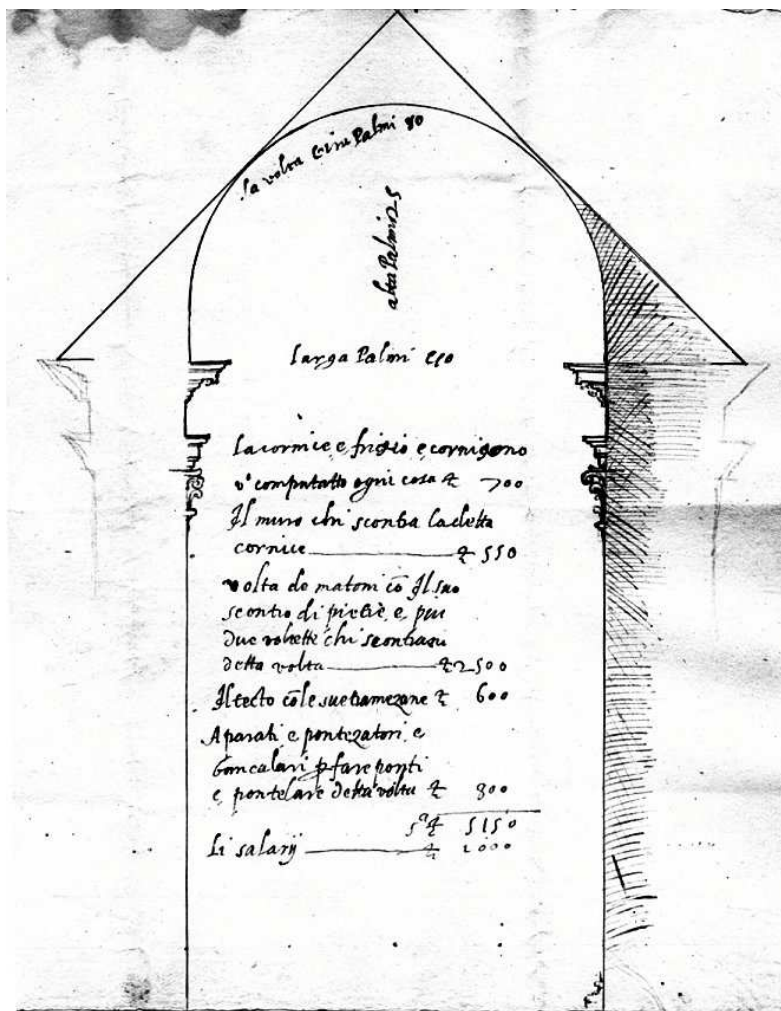 la volta gira Palmi 80
alta Palmi 25
larga Palmi 50
la cornice e frigio e cornigono
v' computatto ogni cosa £ 700
Il muro chi scontra la detta
cornice £ 550
volta de matoni cõ Il suo
scontro di pietre, e, piu
due voltette chi scontranu
detta volta £ 2500
Il tecto cõ le sue tramezane £ 600
Aparati e pontezatori, e
bancalari ꝑ fare ponti
e pontelare detta volta £ 800
sª £ 5150
Li salarij £ 1000